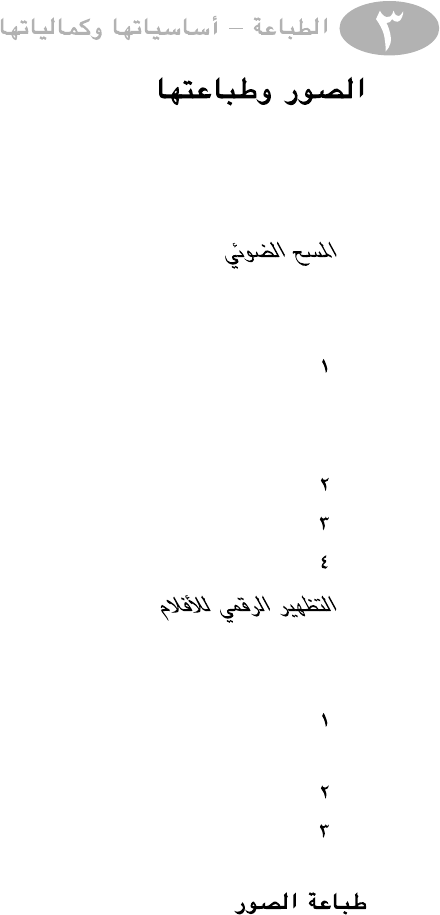 ٣ الطباعة – أساسياتها وكمالياتها
الصور وطباعتها
المسح الضوئي
١
٢
٣
٤
التظهير الرقمي للأفلام
١
٢
٣
طباعة الصور